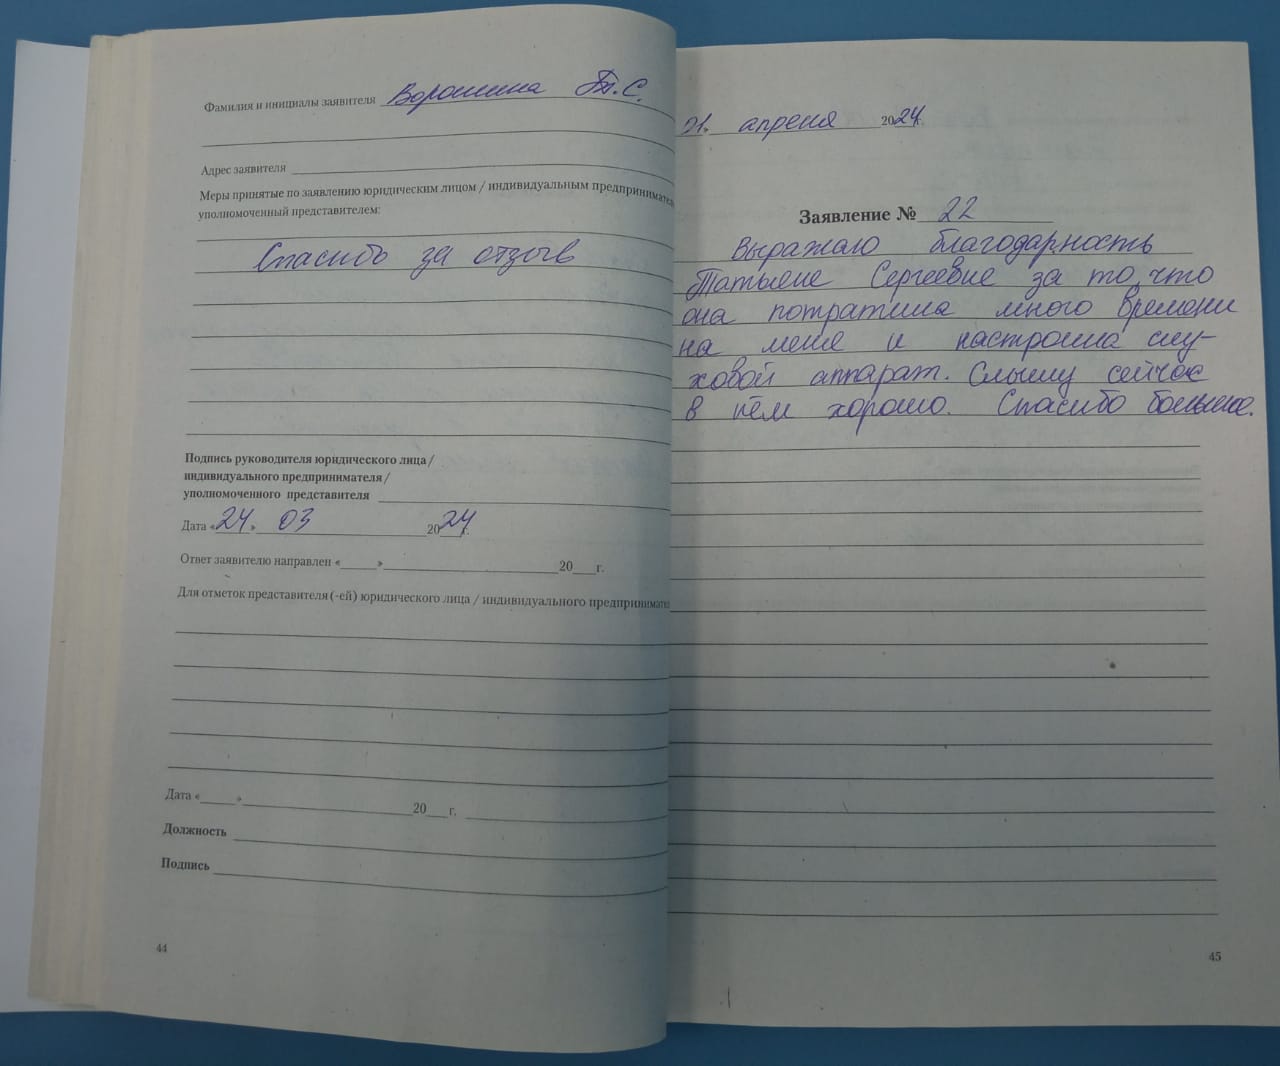 Фамилия и инициалы заявителя Воронина Т.С.
Адрес заявителя
Меры принятые по заявлению юридическим лицом / индивидуальным предпринимате
уполномоченный представителем:
Спасибо за отзыв
Подпись руководителя юридического лица /
индивидуального предпринимателя /
уполномоченного представителя
Дата «24» 03 2024г.
Ответ заявителю направлен «____»____ 20__г.
Для отметок представителя (-ей) юридического лица / индивидуального предпринимате
Дата «____»____ 20__г.
Должность
Подпись
44
апреля 2024г.
Заявление № 22
Выражаю благодарность
Татьяне Сергеевне за то, что
она потратила много времени
на меня и настроила слу-
ховой аппарат. Слышу сейчас
в нём хорошо. Спасибо большое.
45